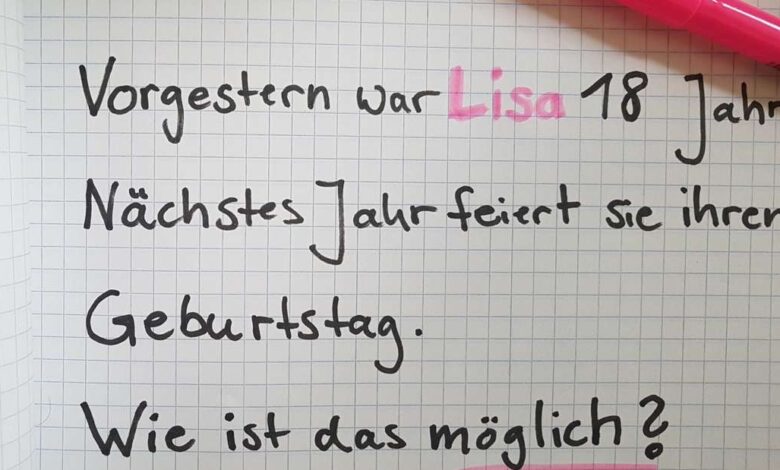 Vorgestern war Lisa 18 Jahr
Nächstes Jahr feiert sie ihren
Geburtstag.
Wie ist das möglich?